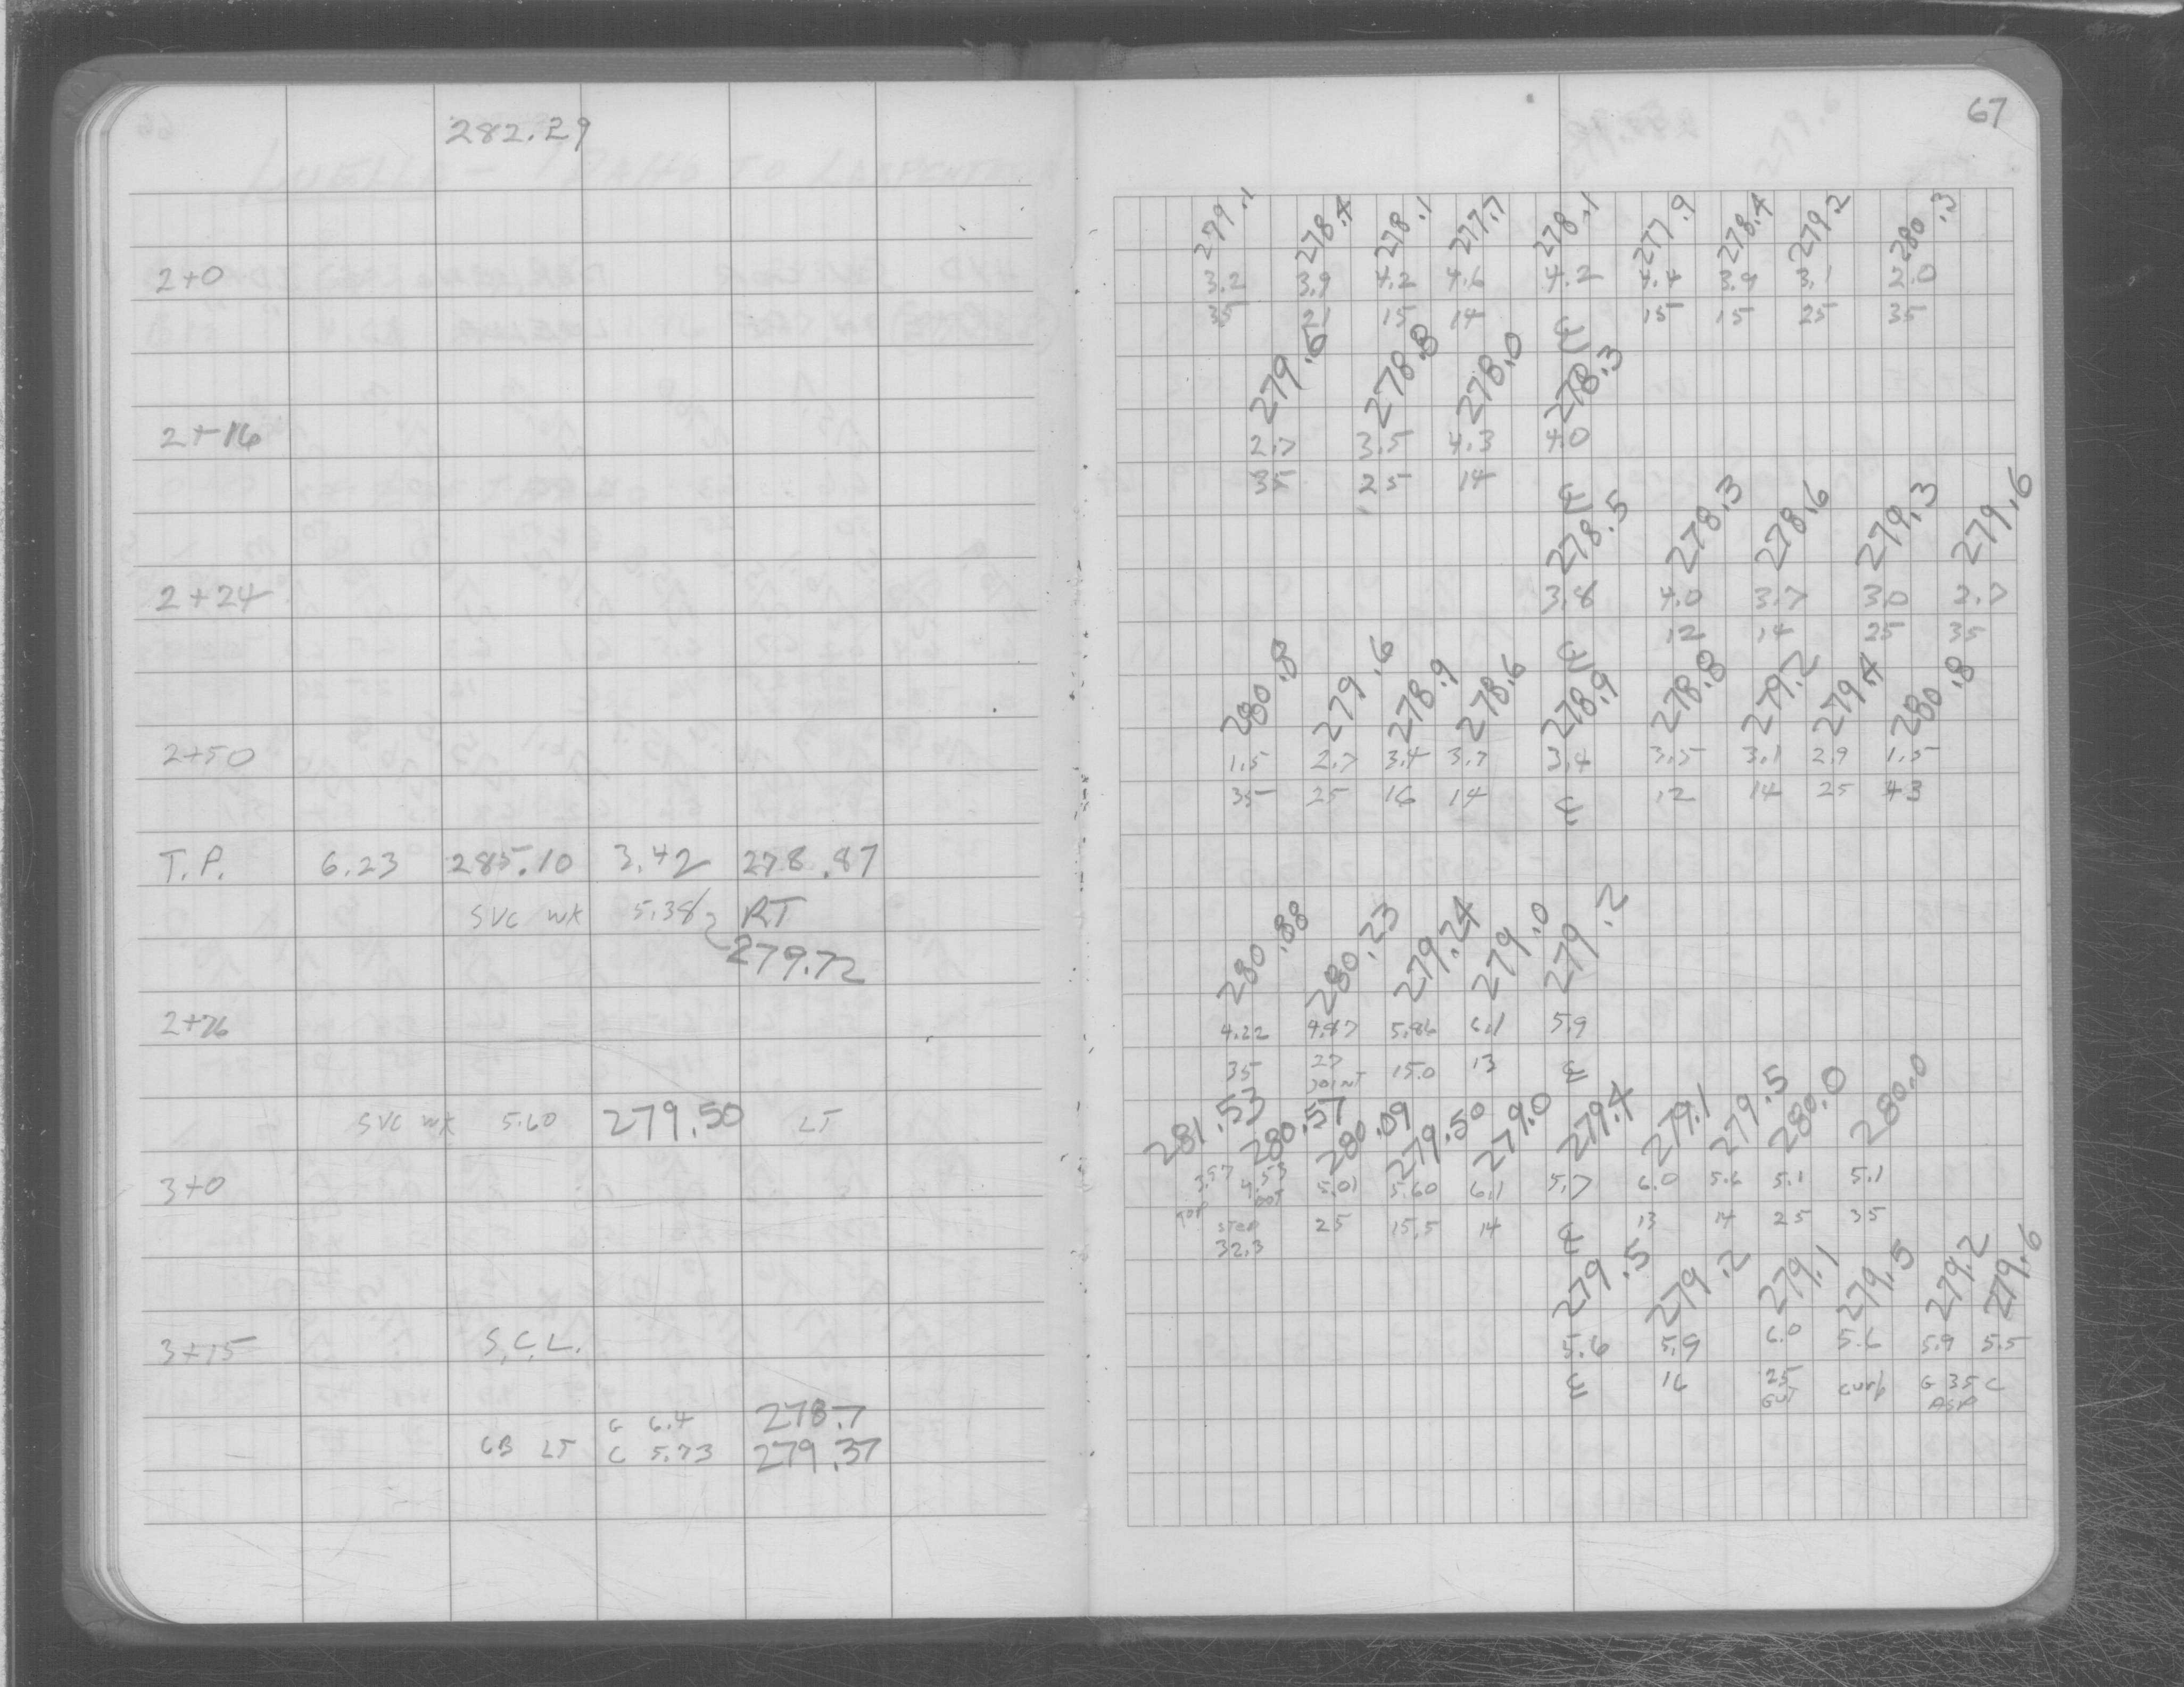 282.29
2+0
2+16
2+24
2+50
T.P. 6.23 285.10 3.42 278.87
SVC WK 5.38 RT
279.72
2+76
SVC WK 5.60 279.50 LT
3+0
3+15 S.C.L.
G 6.4 278.7
CB LT C 5.73 279.37
67
279.1 278.4 278.1 277.7 278.1 277.9 278.4 279.2 280.3
3.2 3.9 4.2 4.6 4.2 4.4 3.9 3.1 2.0
35 21 15 14 ℄ 15 15 25 35
279.6 278.8 278.0 278.3
2.7 3.5 4.3 4.0
35 25 14 ℄
278.5 278.3 278.6 279.3 279.6
3.8 4.0 3.7 3.0 2.7
℄ 12 14 25 35
280.8 279.6 278.9 278.6 278.9 278.8 279.2 279.4 280.8
1.5 2.7 3.4 3.7 3.4 3.5 3.1 2.9 1.5
35 25 16 14 ℄ 12 14 25 43
280.88 280.23 279.24 279.0 279.2
4.22 4.87 5.86 6.1 5.9
35 27 15.0 13 ℄
JOINT
281.53 280.57 280.09 279.50 279.0 279.4 279.1 279.5 280.0 280.0
3.57 4.53 5.01 5.60 6.1 5.7 6.0 5.6 5.1 5.1
TOP BOT
STEP 25 15.5 14 ℄ 13 14 25 35
32.3
279.5 279.2 279.1 279.5 279.2 279.6
5.6 5.9 6.0 5.6 5.9 5.5
℄ 16 25 curb G 35 C
GUT ASP